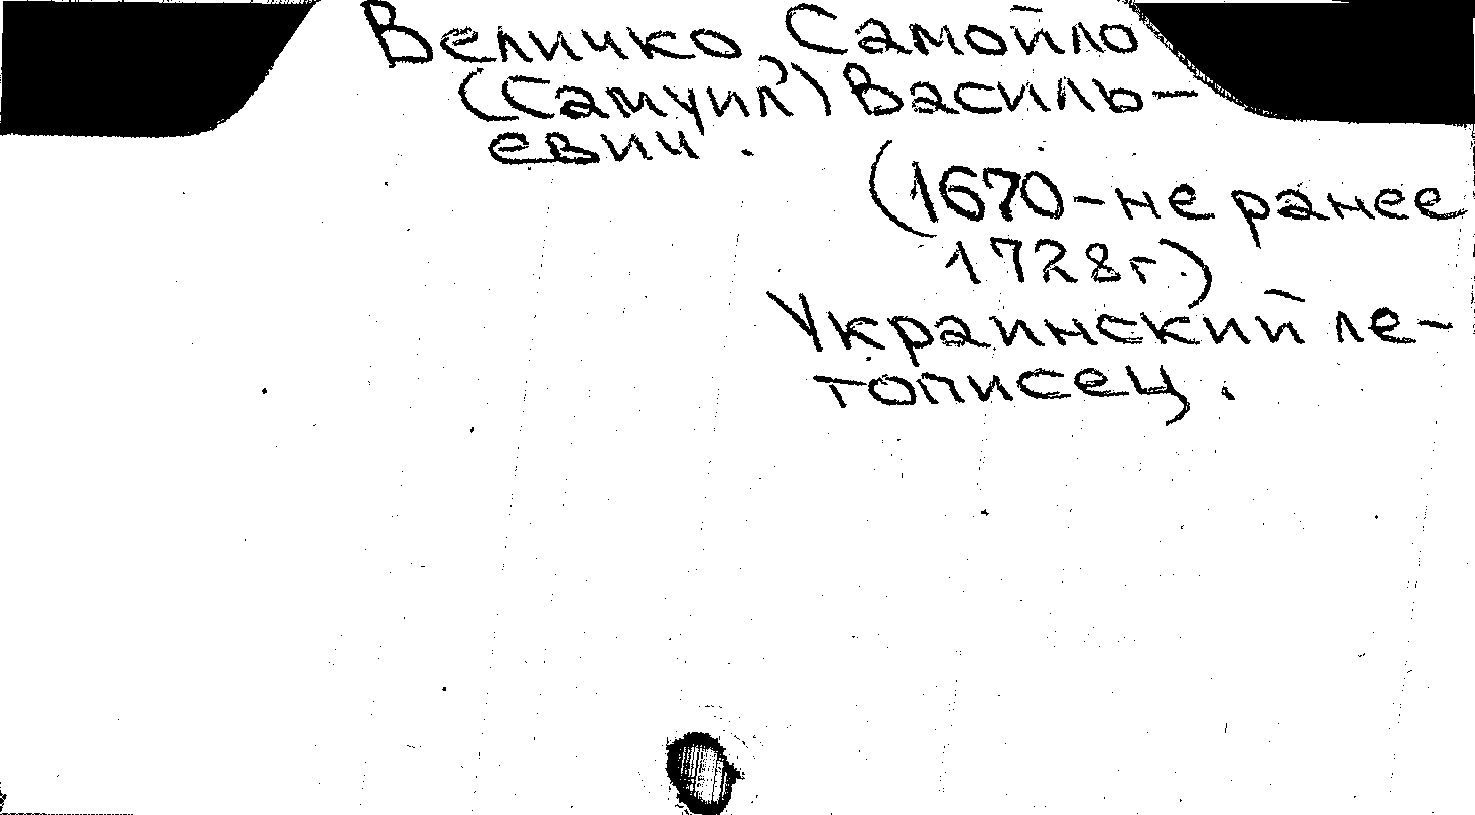 Величко, Самойло
(Самуил) Василь-
евич.
(1670-не ранее
1728г.)
Украинский ле-
тописец.